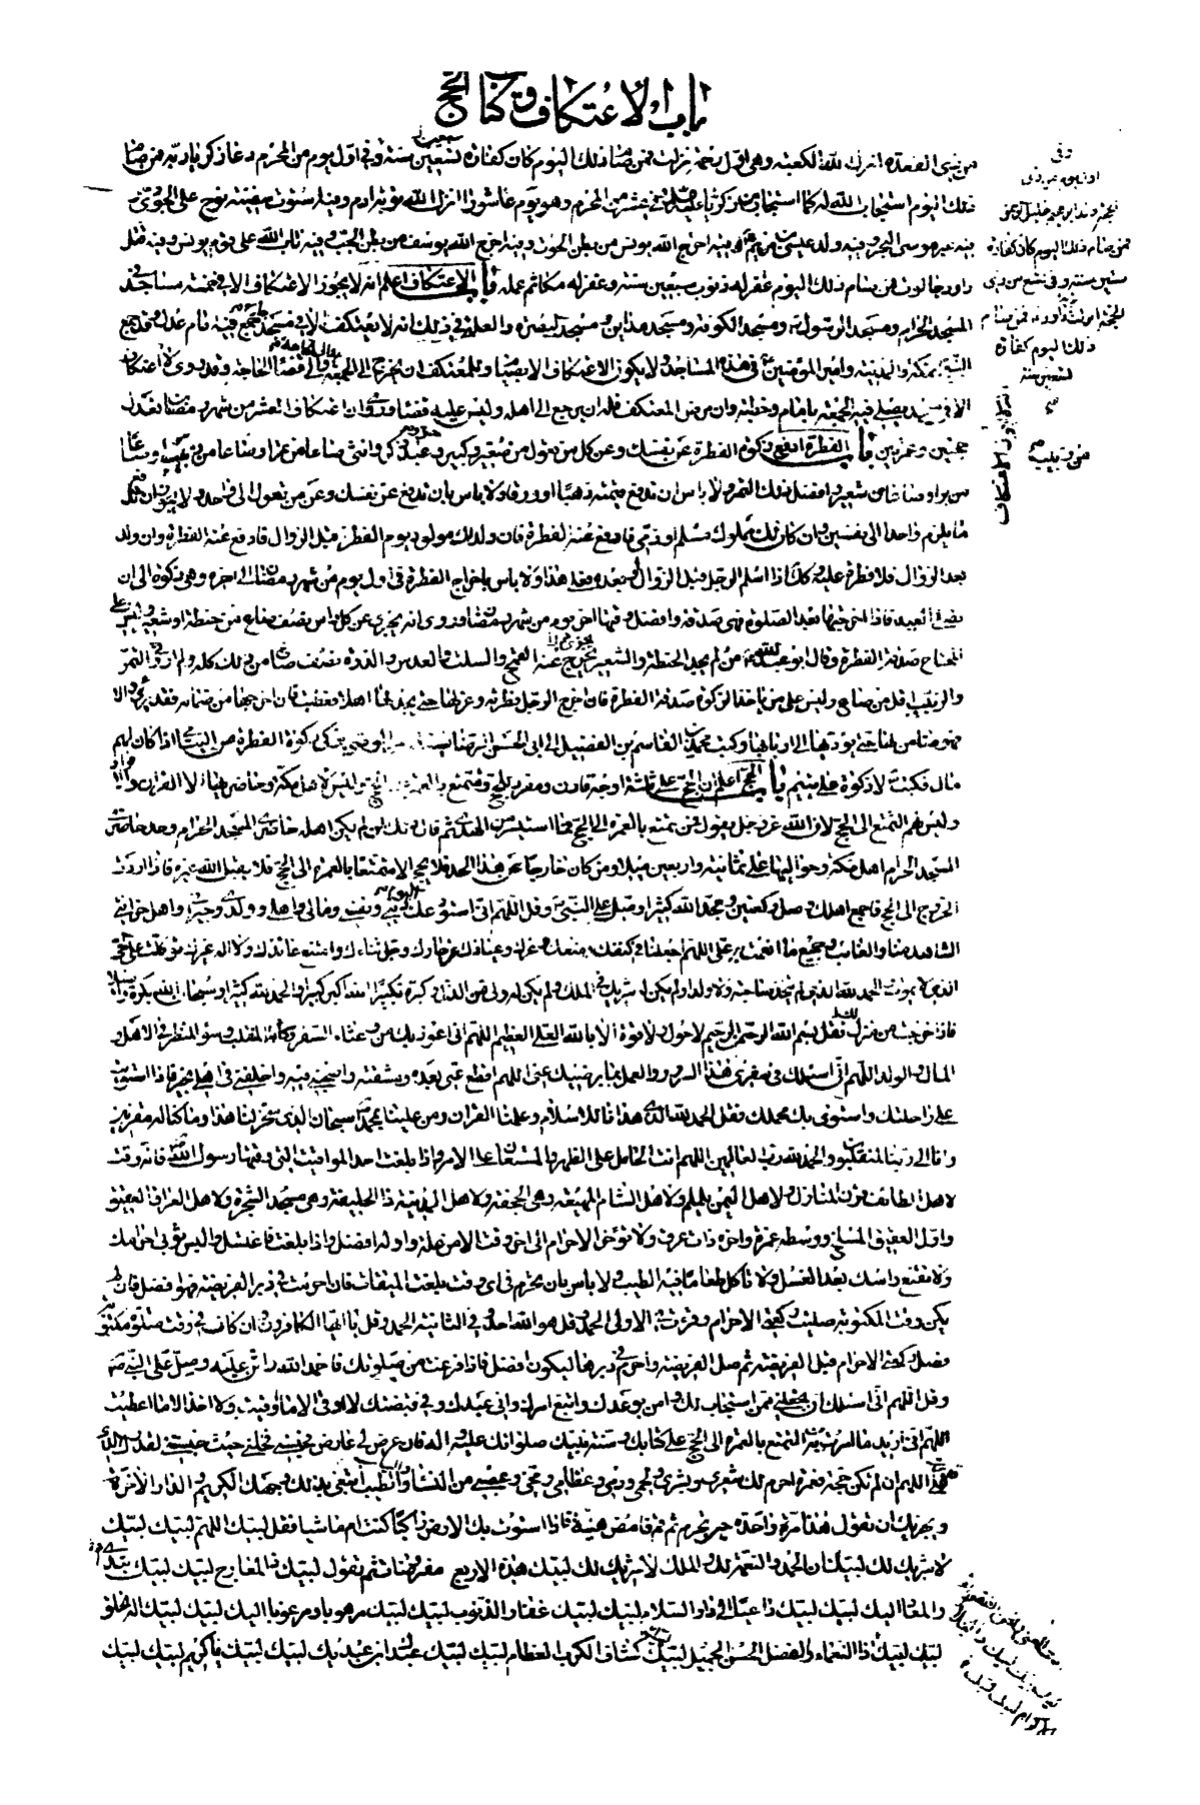 باب الاعتكاف وكتاب الحج
من ذي القعدة انزل الله الكعبة وهي اول رحمة نزلت فمن صام ذلك اليوم كان كفارة سبعين سنة وفي اول يوم من المحرم دعا زكريا ربه فمن صام
ذلك اليوم استجاب الله له كما استجاب من زكريا عليه السلم وفي عشر من المحرم وهو يوم عاشورا انزل الله توبة ادم وفيه استوت سفينة نوح على الجودي و
فيه عبر موسى البحر وفيه ولد عيسى بن مريم وفيه اخرج الله يونس من بطن الحوت وفيه اخرج الله يوسف من بطن الجب وفيه تاب الله على قوم يونس وفيه قتل
داود جالوت فمن صام ذلك اليوم غفر له ذنوب سبعين سنة وغفر له مكاتم عمله باب الاعتكاف اعلم انه لا يجوز الاعتكاف الا في خمسة مساجد في
المسجد الحرام ومسجد الرسول ومسجد الكوفة ومسجد المداين ومسجد البصرة والعلة في ذلك انه لا يعتكف الا في مسجد جامع جمع فيه امام عدل وقد جمع
النبي بمكة والمدينة وامير المؤمنين في هذه المساجد ولا يكون الاعتكاف الا بصيام وللمعتكف ان يخرج الى الجمعة والى قضاء الحاجة وقد روى لا اعتكاف
الا في مسجد يصلى فيه الجمعة بامام وخطبة وان مرض المعتكف فله ان يرجع الى اهله وليس عليه قضاء وروى ان اعتكاف العشر من شهر رمضان يعدل
حجتين وعمرتين باب الفطرة ادفع زكوة الفطرة عن نفسك وعن كل من تعول من صغير وكبير وحر وعبد ذكر وانثى صاعا من تمر او صاعا من زبيب او صاعا
من بر او صاعا من شعير وافضل ذلك التمر ولا باس ان تدفع قيمته ذهبا او ورقا ولا باس بان تدفع عن نفسك وعن من تعول الى واحد ولا يجوز ان تدفع
ما يلزم واحدا الى نفسين وان كان لك مملوك مسلم او ذمي فادفع عنه الفطرة فان ولد لك مولود يوم الفطر قبل الزوال فادفع عنه الفطرة وان ولد
بعد الزوال فلا فطرة عليه وكذلك اذا اسلم الرجل قبل الزوال او بعده فعلى هذا ولا باس باخراج الفطرة في اول يوم من شهر رمضان الى اخره وهي زكوة الى ان
تصلى العيد فاذا اخرجتها بعد الصلوة فهي صدقة وافضل وقتها اخر يوم من شهر رمضان وروى انه يجزي عن كل راس نصف صاع من حنطة او شعير وليس على
المحتاج صدقة الفطرة وقال ابو عبد الله من لم يجد الحنطة والشعير يجزي عنه القمح والسلت والعدس والذرة نصف صاع من ذلك كله ولم ار في التمر
والزبيب اقل من صاع وليس على من ياخذ الزكوة صدقة الفطرة فان اخرج الرجل فطرته وعزلها حتى يجد لها اهلا فعطبت فان اخرجها من ضمانه فقد برئ والا
فهو ضامن لها حتى يؤديها الى اربابها وكتب محمد بن القاسم بن الفضيل الى ابي الحسن الرضا الوصي يزكي زكوة الفطرة من اليتامى اذا كان لهم
مال فكتب لا زكوة على يتيم باب الحج اعلم ان الحج على ثلثة اوجه قارن ومفرد للحج ومتمتع بالعمرة الى الحج وليس لاهل مكة وحاضريها الا القران والافراد
وليس لهم التمتع الى الحج لان الله عز وجل يقول فمن تمتع بالعمرة الى الحج فما استيسر من الهدي ثم قال ذلك لمن لم يكن اهله حاضري المسجد الحرام وحد حاضري
المسجد الحرام اهل مكة وحواليها على ثمانية واربعين ميلا ومن كان خارجا عن هذا الحد فلا يحج الا متمتعا بالعمرة الى الحج فلا يقبل الله غيره فاذا اردت
الخروج الى الحج فاجمع اهلك وصل ركعتين ومجد الله كثيرا وصل على النبي وقل اللهم اني استودعك اليوم ديني ونفسي ومالي واهلي وولدي وجيراني واهل حزانتي
الشاهد منا والغائب وجميع ما انعمت به علي اللهم اجعلنا في كنفك ومنعك وعزك وعياذك عز جارك وجل ثناءك وامتنع عائذك ولا اله غيرك توكلت على الحي
الذي لا يموت الحمد لله الذي لم يتخذ صاحبة ولا ولدا ولم يكن له شريك في الملك ولم يكن له ولي من الذل وكبره تكبيرا الله اكبر كبيرا والحمد لله كثيرا وسبحان الله بكرة واصيلا
فاذا خرجت من منزلك فقل بسم الله الرحمن الرحيم لا حول ولا قوة الا بالله العلي العظيم اللهم اني اعوذ بك من وعثاء السفر وكابة المنقلب وسوء المنظر في الاهل و
المال والولد اللهم اني اسئلك في سفري هذا السرور والعمل بما يرضيك عني اللهم اقطع عني بعده ومشقته واصحبني فيه واخلفني في اهلي بخير فاذا استويت
على راحلتك واستوى بك محملك فقل الحمد لله الذي هدانا للاسلام وعلمنا القران ومن علينا بمحمد سبحان الذي سخر لنا هذا وما كنا له مقرنين
وانا الى ربنا لمنقلبون والحمد لله رب العالمين اللهم انت الحامل على الظهر والمستعان على الامر واذا بلغت احد المواقيت التي وقتها رسول الله فانه وقت
لاهل الطائف قرن المنازل ولاهل اليمن يلملم ولاهل الشام المهيعة وهي الجحفة ولاهل المدينة ذا الحليفة وهي مسجد الشجرة ولاهل العراق العقيق
واول العقيق المسلخ ووسطه غمرة واخره ذات عرق ولا تؤخر الاحرام الى اخر وقت الا من علة واوله افضل واذا بلغت فاغتسل والبس ثوبي احرامك
ولا تقنع راسك بعد الغسل ولا تاكل طعاما فيه الطيب ولا باس بان يحرم في اي وقت بلغت الميقات فان احرمت في دبر الفريضة فهو افضل فان لم
يكن وقت المكتوبة صليت ركعتي الاحرام وقرات في الاولى الحمد وقل هو الله احد وفي الثانية الحمد وقل يا ايها الكافرون وان كان في وقت صلوة مكتوبة
فصل ركعتي الاحرام قبل الفريضة ثم صل الفريضة واحرم في دبرها ليكون افضل فاذا فرغت من صلوتك فاحمد الله واثن عليه وصل على النبي
وقل اللهم اني اسئلك ان تجعلني ممن استجاب لك وامن بوعدك واتبع امرك واني عبدك وفي قبضتك لا اوقى الا ما اوقيت ولا اخذ الا ما اعطيت
اللهم اني اريد ما امرت به من التمتع بالعمرة الى الحج على كتابك وسنة نبيك صلواتك عليه واله فان عرض لي عارض يحبسني فحلني حيث حبستني لقدرك الذي
قدرت علي اللهم ان لم تكن حجة فعمرة احرم لك شعري وبشري ولحمي ودمي وعظامي ومخي وعصبي من النساء والطيب ابتغي بذلك وجهك الكريم والدار الاخرة
ويجزيك ان تقول هذا مرة واحدة حين تحرم ثم قم فامض هنيئة فاذا استوت بك الارض راكبا كنت ام ماشيا فقل لبيك اللهم لبيك لبيك
لا شريك لك لبيك ان الحمد والنعمة لك والملك لا شريك لك لبيك هذه الاربع مفروضات ثم تقول لبيك ذا المعارج لبيك لبيك تبدئ
والمعاد اليك لبيك لبيك لبيك داعيا الى دار السلام لبيك لبيك غفار الذنوب لبيك لبيك مرهوبا ومرغوبا اليك لبيك لبيك اله الخلق
لبيك لبيك ذا النعماء والفضل الحسن الجميل لبيك لبيك كشاف الكرب العظام لبيك لبيك عبدك ابن عبديك لبيك لبيك يا كريم لبيك لبيك
وفي
اول يوم من ذي
الحجة ولد ابرهيم خليل الرحمن
فمن صام ذلك اليوم كان كفارة
ستين سنة وفي تسع من ذي
الحجة انزلت توبة داود فمن صام
ذلك اليوم كفارة
تسعين سنة